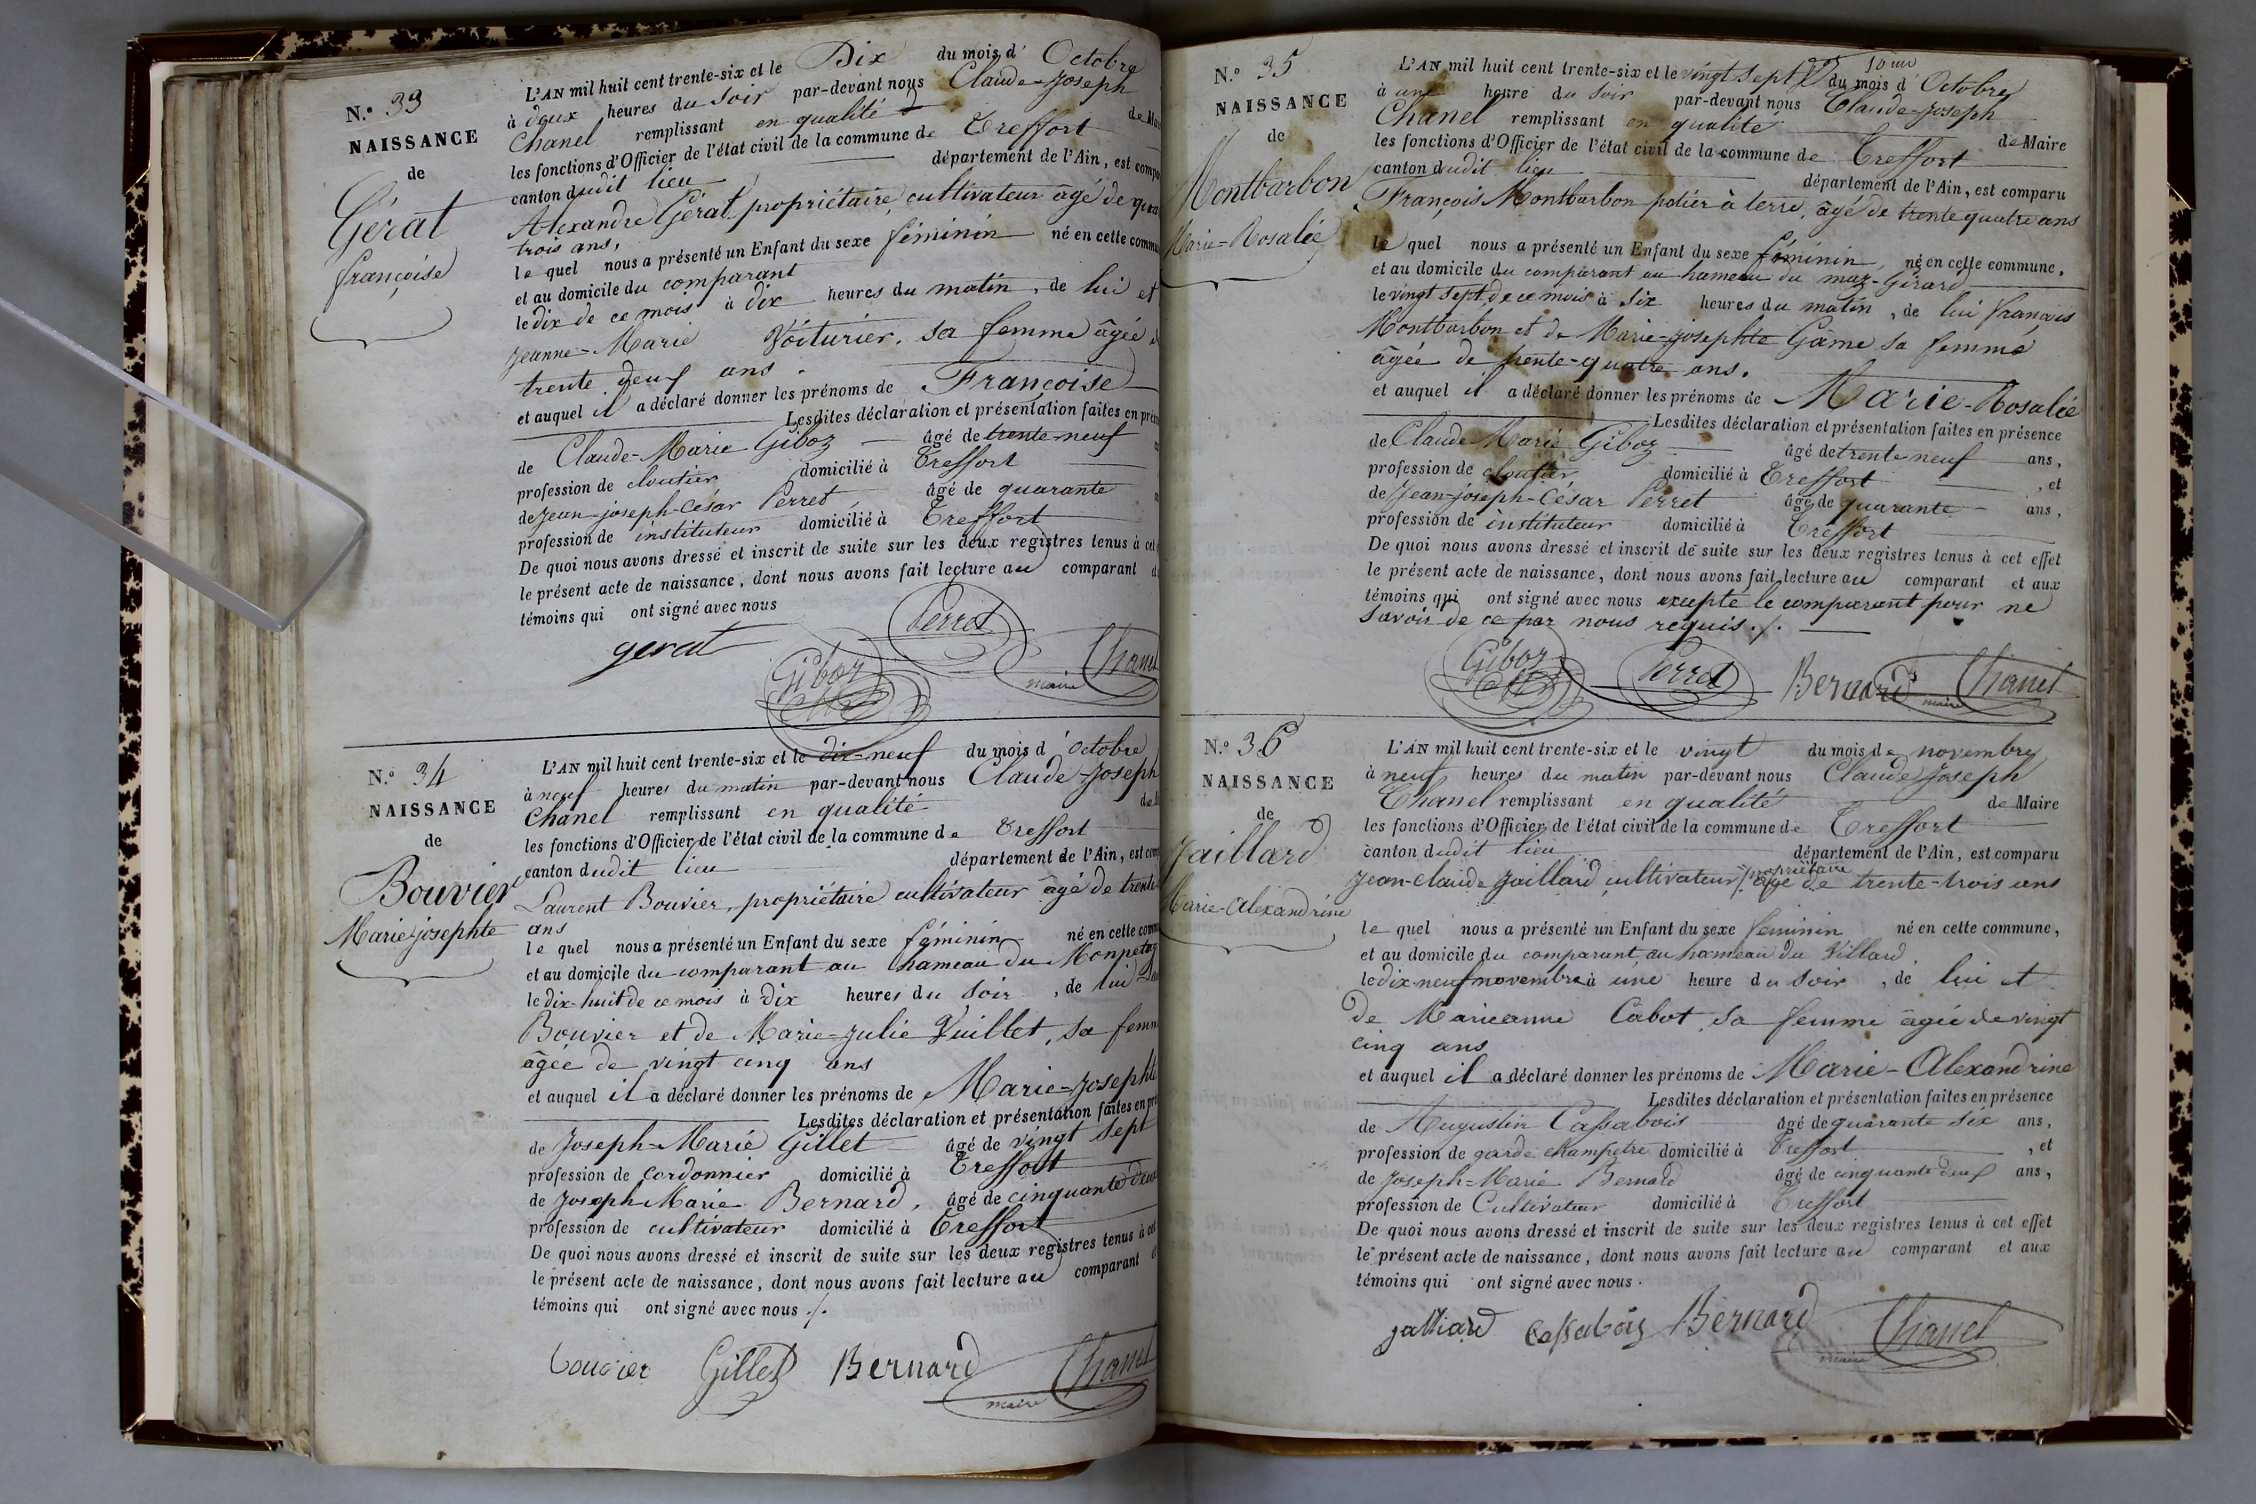 N.° 33
NAISSANCE
de
Gérat
françoise
L'AN mil huit cent trente-six et le Dix du mois d' Octobre
à deux heures du soir par-devant nous Claude-Joseph
Chanel remplissant en qualité de
les fonctions d'Officier de l'état civil de la commune de Treffort
canton dudit lieu département de l'Ain, est
Alexandre Gérat propriétaire cultivateur âgé de
trois ans,
le quel nous a présenté un Enfant du sexe féminin né en cette
et au domicile du comparant
le dix de ce mois à dix heures du matin, de lui et
Jeanne-Marie Voiturier, sa femme âgée
trente neuf ans.
et auquel il a déclaré donner les prénoms de Françoise
Lesdites déclaration et présentation faites en
de Claude-Marie Giboz âgé de trente-neuf
profession de cloutier domicilié à Treffort
de Jean-joseph-César Perret âgé de quarante
profession de instituteur domicilié à Treffort
De quoi nous avons dressé et inscrit de suite sur les deux registres tenus à cet
le présent acte de naissance, dont nous avons fait lecture au comparant
témoins qui ont signé avec nous
gerat Giboz Perret maire Chanel
N.° 34
NAISSANCE
de
Bouvier
Marie-josephte
L'AN mil huit cent trente-six et le dix-neuf du mois d' octobre
à neuf heures du matin par-devant nous Claude-Joseph
Chanel remplissant en qualité
les fonctions d'Officier de l'état civil de la commune de Treffort
canton dudit lieu département de l'Ain, est
Laurent Bouvier, propriétaire cultivateur âgé de trente
ans
le quel nous a présenté un Enfant du sexe féminin né en cette
et au domicile du comparant au hameau du
le dix-huit de ce mois à dix heures du soir, de lui
Bouvier et de Marie-Julie Vuillet, sa
âgée de vingt cinq ans
et auquel il a déclaré donner les prénoms de Marie-Josephte
Lesdites déclaration et présentation faites en
de Joseph-Marie Gillet âgé de vingt sept
profession de cordonnier domicilié à Treffort
de Joseph-Marie Bernard, âgé de cinquante deux
profession de cultivateur domicilié à Treffort
De quoi nous avons dressé et inscrit de suite sur les deux registres tenus à cet
le présent acte de naissance, dont nous avons fait lecture au comparant
témoins qui ont signé avec nous ./.
bouvier Gillet Bernard maire Chanel
N.° 35
NAISSANCE
de
Montbarbon
Marie-Rosalie
L'AN mil huit cent trente-six et le vingt sept du mois d' Octobre
à une heure du soir par-devant nous Claude-Joseph
Chanel remplissant en qualité de Maire
les fonctions d'Officier de l'état civil de la commune de Treffort
canton dudit lieu département de l'Ain, est comparu
François Montbarbon potier à terre, âgé de trente quatre ans
le quel nous a présenté un Enfant du sexe féminin, né en cette commune,
et au domicile du comparant au hameau du maz-Girard
le vingt sept de ce mois à six heures du matin, de lui françois
Montbarbon et de Marie-josephte Game sa femme
âgée de trente-quatre ans.
et auquel il a déclaré donner les prénoms de Marie-Rosalie
Lesdites déclaration et présentation faites en présence
de Claude Marie Giboz âgé de trente neuf ans,
profession de cloutier domicilié à Treffort, et
de Jean-joseph-César Perret âgé de quarante ans,
profession de instituteur domicilié à Treffort
De quoi nous avons dressé et inscrit de suite sur les deux registres tenus à cet effet
le présent acte de naissance, dont nous avons fait lecture au comparant et aux
témoins qui ont signé avec nous excepté le comparant pour ne
savoir de ce par nous requis ./.
Giboz Perret Bernard maire Chanel
N.° 36
NAISSANCE
de
Jaillard
Marie-Alexandrine
L'AN mil huit cent trente-six et le vingt du mois de novembre
à neuf heures du matin par-devant nous Claude Joseph
Chanel remplissant en qualité de Maire
les fonctions d'Officier de l'état civil de la commune de Treffort
canton dudit lieu département de l'Ain, est comparu
Jean-claude Jaillard cultivateur propriétaire âgé de trente-trois ans
le quel nous a présenté un Enfant du sexe féminin né en cette commune,
et au domicile du comparant au hameau du Villard
le dix-neuf novembre à une heure du soir, de lui et
de Marieanne Cabot sa femme âgée de vingt
cinq ans
et auquel il a déclaré donner les prénoms de Marie-Alexandrine
Lesdites déclaration et présentation faites en présence
de Augustin Cassabois âgé de quarante six ans,
profession de garde champêtre domicilié à Treffort, et
de Joseph-Marie Bernard âgé de cinquante deux ans,
profession de Cultivateur domicilié à Treffort
De quoi nous avons dressé et inscrit de suite sur les deux registres tenus à cet effet
le présent acte de naissance, dont nous avons fait lecture au comparant et aux
témoins qui ont signé avec nous.
jalliard Cassabois Bernard maire Chanel